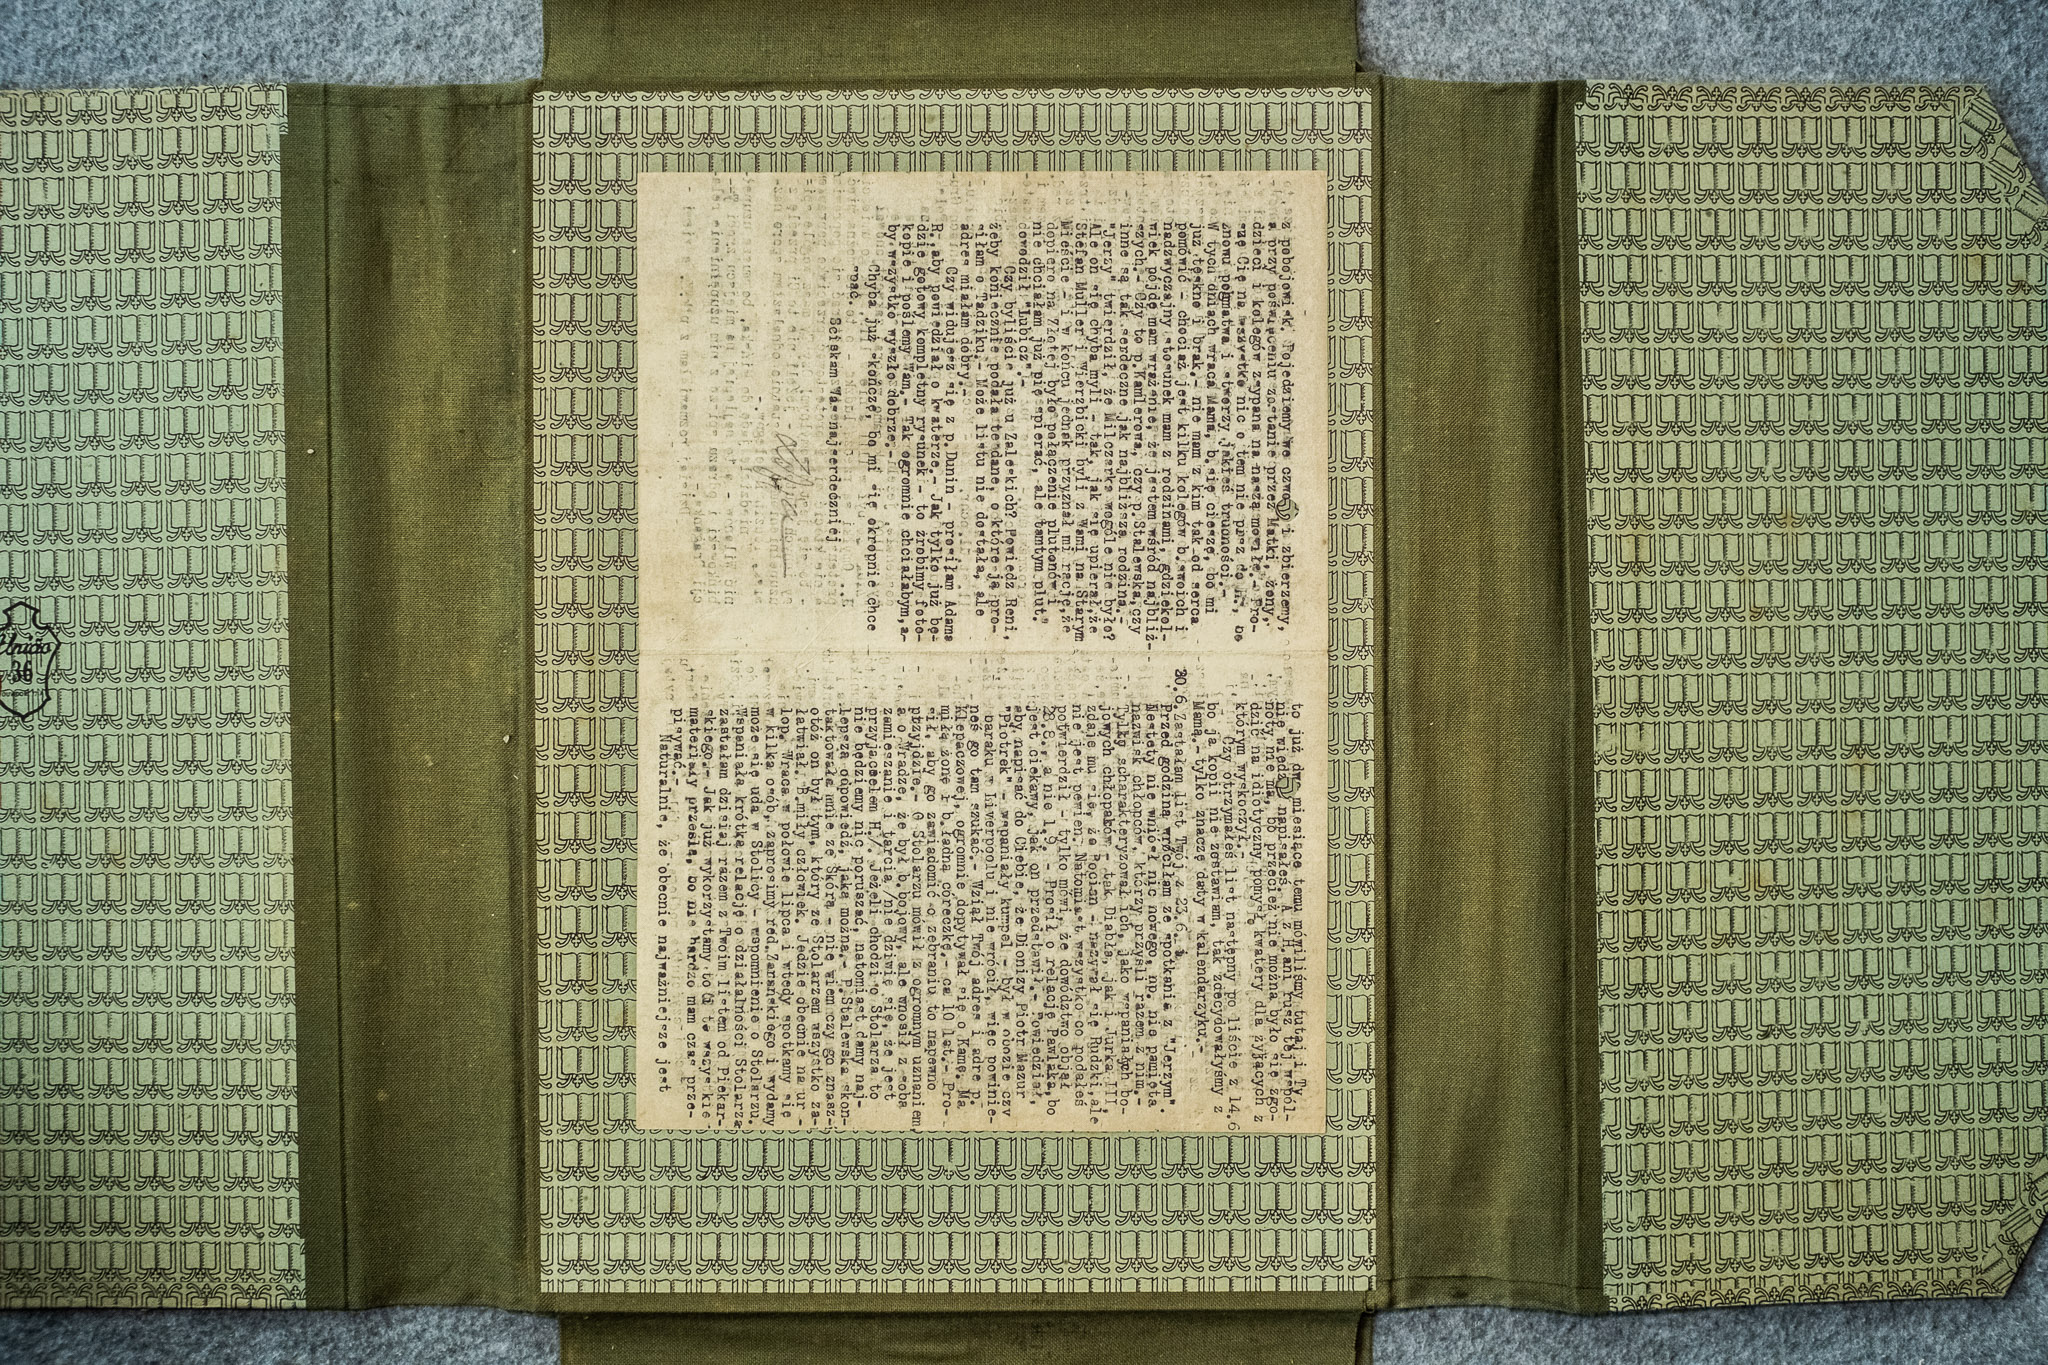 pobojowisk. Pojedziemy we czwo i zbierzemy,
przy poświęceniu zostanie przez Matki, żony,
dzieci i kolegów zsypana na naszą mogiłę.- Pro-
szę Cię na wszystko nic o tem nie pisz do H., bo
znowu pogmatwa i stworzy jakieś trudności.-
W tych dniach wraca Mama, b.się cieszę, bo mi
już tęskno i brak.- nie mam z kim tak od serca
pomówić - chociaż jest kilku kolegów b.swoich i
nadzwyczajny stosunek mam z rodzinami, gdziekol-
wiek pójdę mam wrażenie, że jestem wśród najbliż-
szych.- Czy to p.Kamlerowa, czy p.Stalewska, czy
inne są tak serdeczne jak najbliższa rodzina.-
"Jerzy" twierdził, że Milczarka wogóle nie było?
Ale on się chyba myli - tak, jak się upierał, że
Stefan Muller i Wierzbicki byli z Wami na Starym
Mieście - i w końcu jednak przyznał mi rację, że
dopiero na Złotej było połączenie plutonów i
nie chciałam już się spierać, ale tamtym plut.
dowodził "Lubicz".-
Czy byliście już u Zaleskich? Powiedz Reni,
żeby koniecznie podała te dane, o które ja pro-
siłam o Tadziku.- Może listu nie dostała, ale
adres miałam dobry.-
Czy widujesz się z p.Dunin - prosiłam Adama
R., aby powiedział o kwaterze.- Jak tylko już bę-
dzie gotowy kompletny rysunek - to zrobimy foto-
kopie i poślemy Wam.- Tak ogromnie chciałabym, a-
by wszystko wyszło dobrze.-
Chyba już skończę, bo mi się okropnie chce
spać.
Ściskam Was najserdeczniej
to już dwa miesiące temu mówiliśmy tutaj i Ty
nie wiedz napisałeś. A z H.ani rusz tej wspól-
noty nie ma, bo przecież nie można było się zgo-
dzić na idiotyczny pomysł kwatery dla żyjących z
którym wyskoczył.-
Czy otrzymałeś list następny po liście z 14.6
bo ja kopii nie zostawiam, tak zdecydowałyśmy z
Mamą,- tylko znaczę daty w kalendarzyku.-
30.6. Zastałam list Twój z 23.6. i
Przed godziną wróciłam ze spotkania z "Jerzym".
Niestety nie wniósł nic nowego, np. nie pamięta
nazwisk chłopców, którzy przyszli razem z nim.-
Tylko scharakteryzował ich, jako wspaniałych bo-
jowych chłopaków - tak Diabła, jak i Jurka III,
zdaje mu się, że Bocian - nazywał się Rudzki, ale
nie jest pewien. Natomiast wszystko co podałeś
potwierdził - tylko mówił, że dowództwo objął
28.8., a nie 1.9.- Prosił o relację Pawlaka, bo
Jest ciekawy, jak on przedstawił.- Powiedział,
aby napisać do Ciebie, że Dionizy Piotr Mazur
"Piotrek" - wspaniały kumpel - był w obozie czy
baraku w Liverpolu i nie wrócił, więc powinie-
neś go tam szukać.- Wziął Twój adres i adre p.
Klepaczowej, ogromnie dopytywał się o Kamę. Ma
miłą żonę i b.ładną córeczkę.- ca 10 lat.- Pro-
sił, aby go zawiadomić o zebraniu to napewno
przyjdzie.- O Stolarzu mówił z ogromnym uznaniem,
a o Władzę, że był b.bojowy, ale wnosił z sobą
zamieszanie i tarcia /nie dziwię się, że jest
przyjacielem H./. Jeżeli chodzi o Stolarza to
nie będziemy nic poruszać, natomiast damy naj-
lepszą odpowiedź, jaką można.- P.Stalewska skon-
taktowała mnie ze Skórą - nie wiem czy go znasz-
otóż on był tym, który ze Stolarzem wszystko za-
łatwiał. B.miły człowiek. Jedzie obecnie na ur -
lop. Wraca w połowie lipca i wtedy spotkamy się
w kilka osób, zaprosimy red.Zarańskiego i wydamy
może się uda w Stolicy - wspomnienie o Stolarzu.
Wspaniałą krótką relację o działalności Stolarza
zastałam dzisiaj razem z Twoim listem od Piekar-
skiego.- Jak już wykorzystamy to Ci te wszystkie
materiały prześlę, bo nie bardzo mam czas prze-
pisywać.-
Naturalnie, że obecnie najważniejsze jest
36